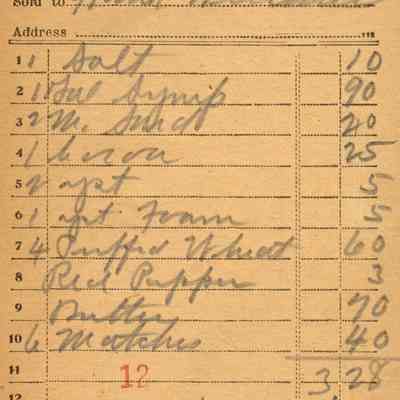 Sold to
Address
1 1 Salt 10
2 1 Gal Syrup 90
3 2 M. 20
4 1 Cocoa 25
5 2 yst 5
6 1 yst Foam 5
7 4 Puffed Wheat 60
8 Red Pepper 3
9 Butter 70
10 6 Matches 40
11 12 3.28
12